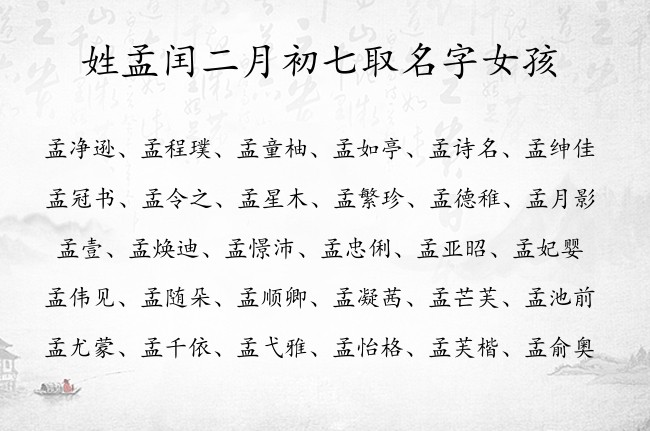 姓孟闰二月初七取名字女孩
孟净逊、孟程璞、孟童柚、孟如亭、孟诗名、孟绅佳
孟冠书、孟令之、孟星木、孟繁珍、孟德稚、孟月影
孟壹、孟焕迪、孟憬沛、孟忠俐、孟亚昭、孟妃婴
孟伟见、孟随朵、孟顺卿、孟凝茜、孟芒芙、孟池前
孟尤蒙、孟千依、孟弋雅、孟怡格、孟芙楷、孟俞奥